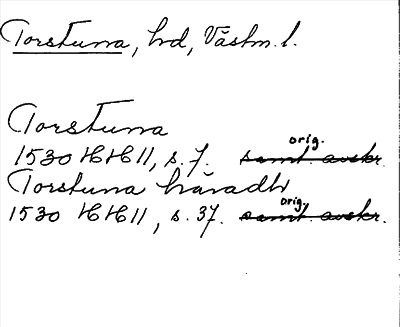 Torstuna, hd, Västm. l.
Torstuna
orig.
1530 HH II, s. 7. samt. avskr.
Torstuna häradh
orig.
1530 HH II, s. 37. samt. avskr.